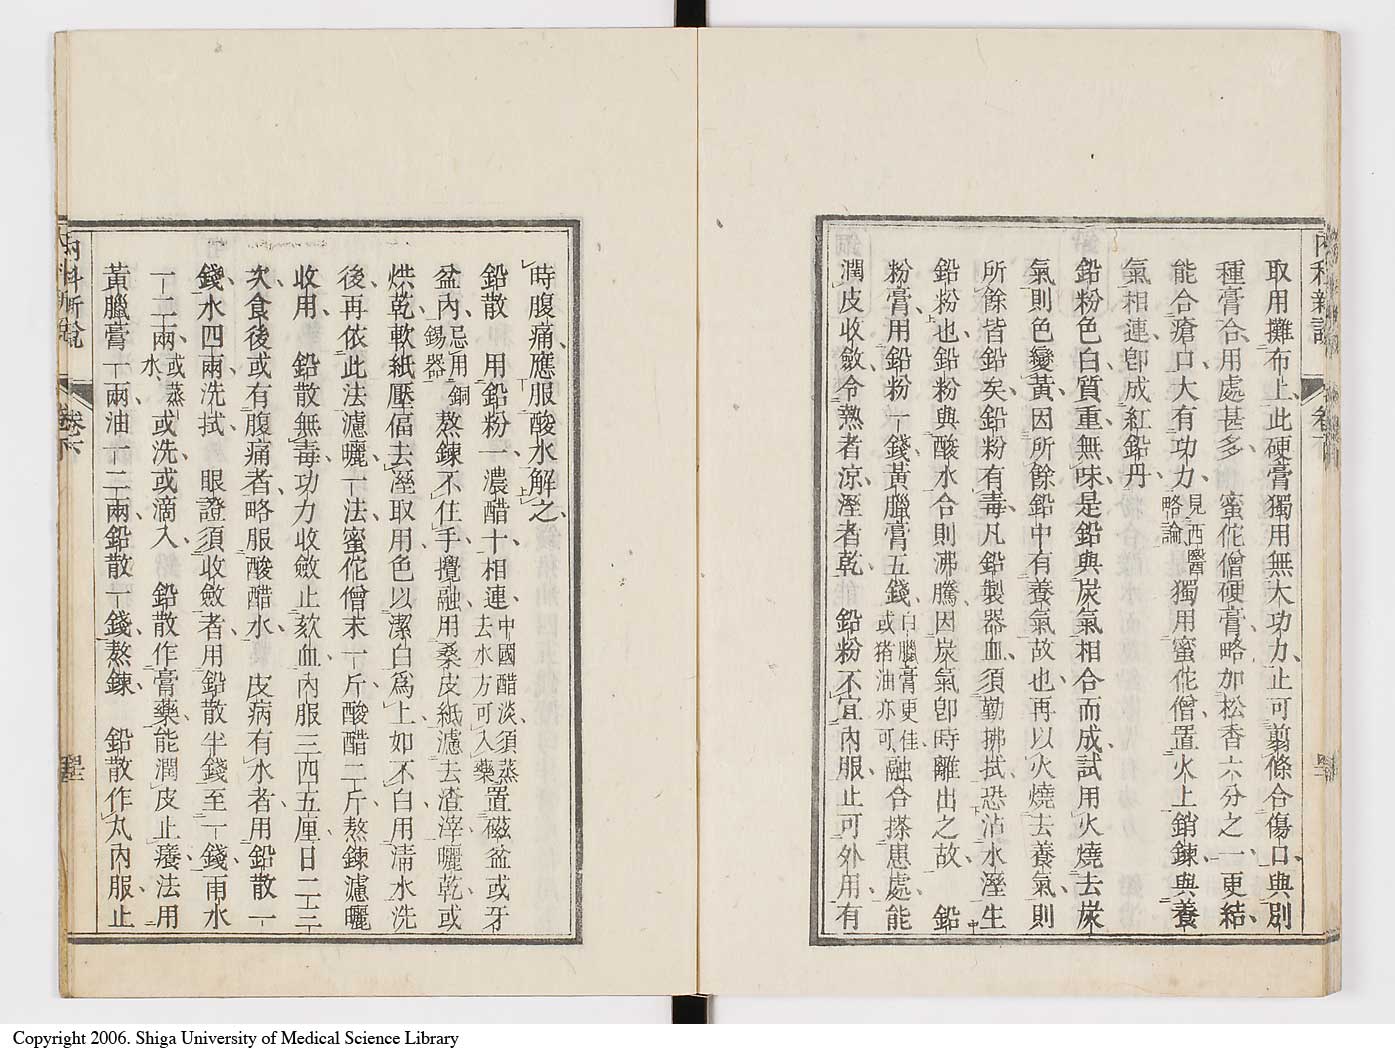 內科新說
卷下
取用攤布上、此硬膏獨用無大功力、止可翦條合傷口、與別
種膏合、用處甚多、 蜜佗僧硬膏、略加松香六分之一、更結、
能合瘡口、大有功力、見西醫略論獨用蜜佗僧置火上銷鍊、與養
氣相連、卽成紅鉛丹、
鉛粉色白、質重、無味、是鉛與炭氣相合而成、試用火燒去炭
氣、則色變黃、因所餘鉛中有養氣故也、再以火燒去養氣、則
所餘皆鉛矣、鉛粉有毒、凡鉛製器皿、須勤拂拭、恐沾水溼生
鉛粉也、鉛粉與酸水合則沸騰、因炭氣卽時離出之故、 鉛
粉膏、用鉛粉一錢、黃臘膏五錢、白臘膏更佳、或猪油亦可、融合搽患處、能
潤皮收斂、令熱者涼、溼者乾、 鉛粉不宜內服、止可外用、有
時腹痛、應服酸水解之、
鉛散 用鉛粉一、濃醋十相連、中國醋淡、須蒸去水方可入藥置磁盆或牙
盆內、忌用銅錫器熬鍊、不住手攪融、用桑皮紙濾去渣滓、曬乾或
烘乾、軟紙壓偪去溼、取用、色以潔白爲上、如不白、用淸水洗
後、再依此法濾曬、一法、蜜佗僧末一斤、酸醋二斤、熬鍊濾曬
收用、 鉛散無毒、功力收斂、止欬血、內服三四五厘、日二三
次、食後或有腹痛者、略服酸醋水、 皮病有水者、用鉛散一
錢、水四兩、洗拭、 眼證須收斂者、用鉛散半錢至一錢、雨水
一二兩、或蒸水、或洗或滴入、 鉛散作膏藥、能潤皮止癢、法用
黃臘膏一兩、油一二兩、鉛散一錢、熬鍊、 鉛散作丸內服、止
內科新說
卷下